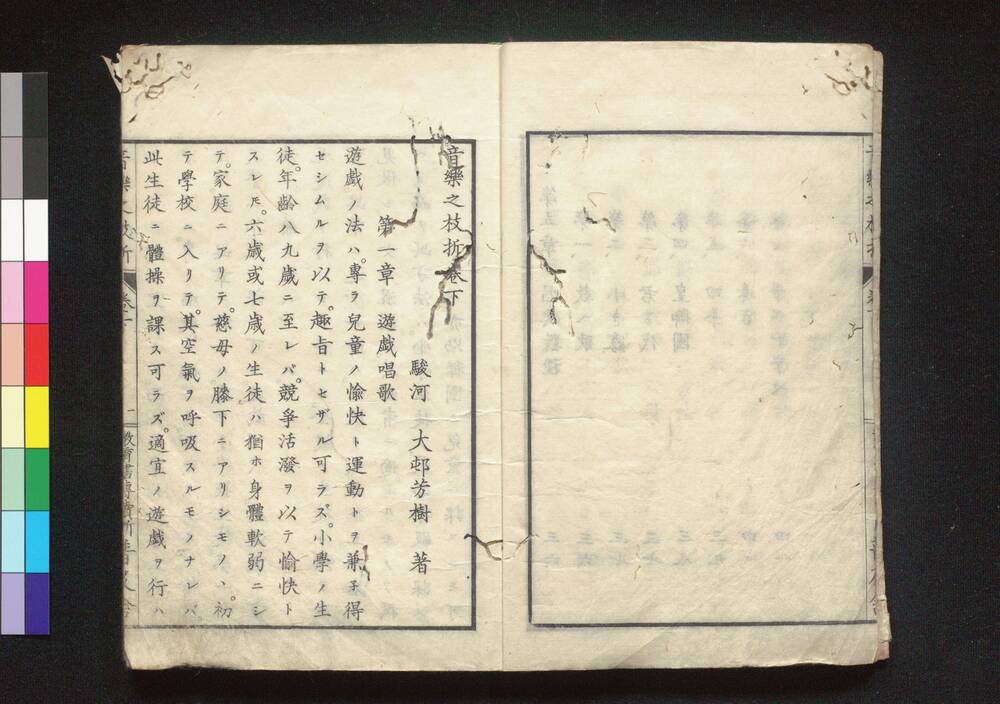 音樂之枝折卷下
駿河 大邨芳樹 著
第一章 遊戲唱歌
遊戲ノ法ハ。專ラ兒童ノ愉快ト運動トヲ兼子得
セシムルヲ以テ。趣旨トセザル可ラズ。小學ノ生
徒。年齡八九歲ニ至レバ。競爭活潑ヲ以テ愉快ト
スレ𪜈。六歲或七歲ノ生徒ハ猶ホ身體軟弱ニシ
テ。家庭ニアリテ。慈母ノ膝下ニアリシモノヽ。初
テ學校ニ入リテ。其空氣ヲ呼吸スルモノナレバ。
此生徒ニ體操ヲ課ス可ラズ。適宜ノ遊戲ヲ行ハ
音樂之枝折 卷下 一